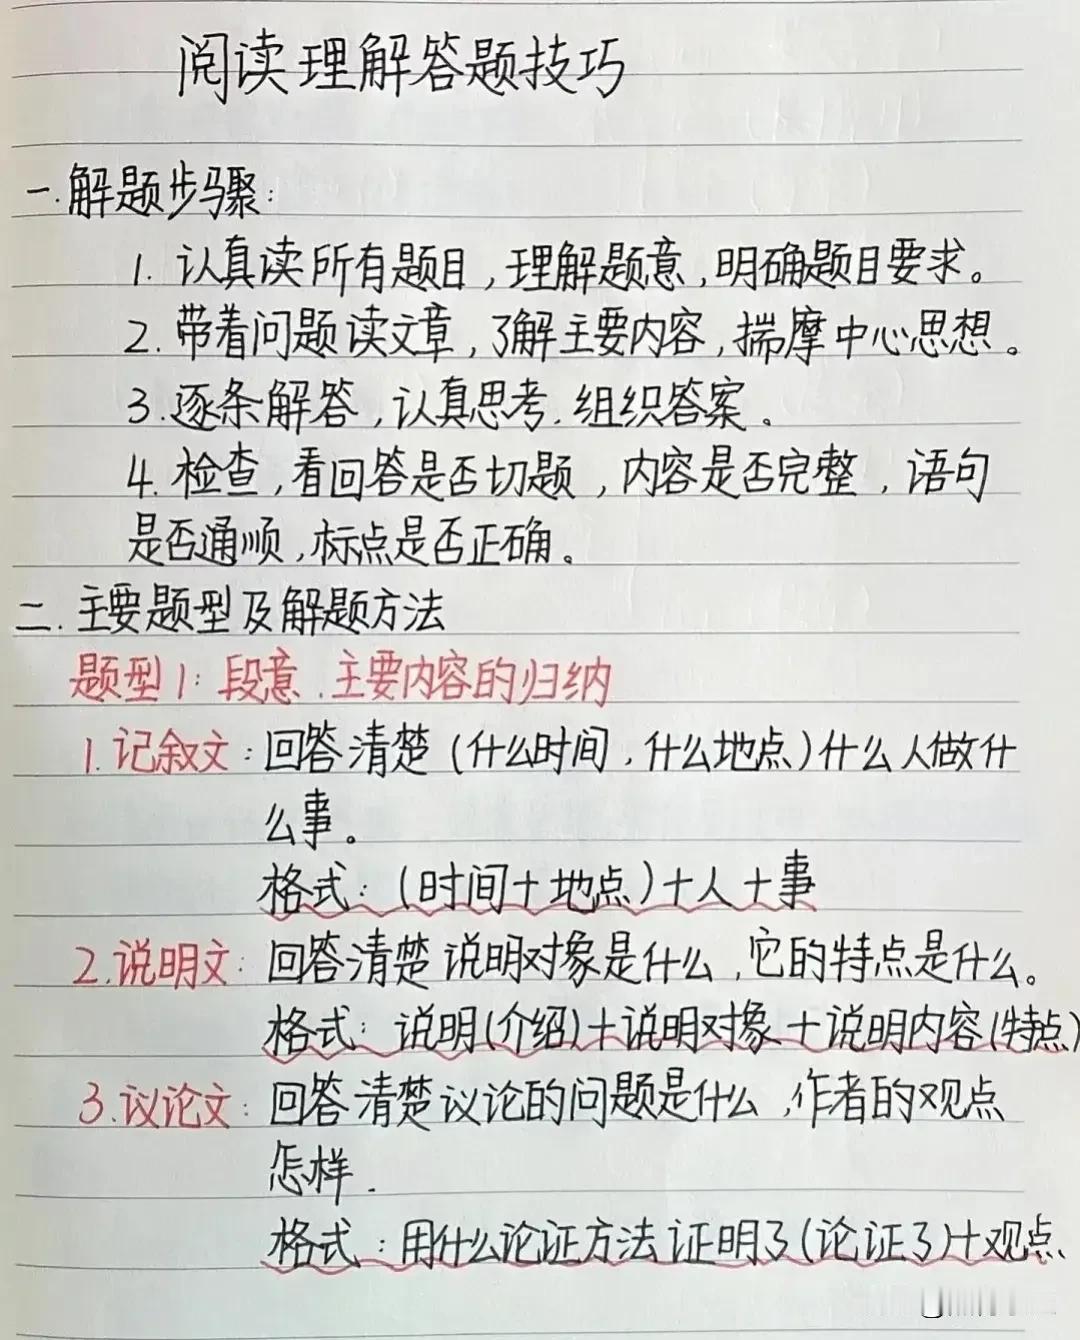 阅读理解答题技巧
一.解题步骤:
1. 认真读所有题目,理解题意,明确题目要求。
2. 带着问题读文章,了解主要内容,揣摩中心思想。
3.逐条解答,认真思考.组织答案。
4. 检查,看回答是否切题,内容是否完整,语句
是否通顺,标点是否正确。
二.主要题型及解题方法
题型1:段意.主要内容的归纳
1.记叙文:回答清楚(什么时间,什么地点)什么人做什
么事。
格式:(时间+地点)+人+事
2.说明文:回答清楚说明对象是什么,它的特点是什么。
格式:说明(介绍)+说明对象+说明内容(特点)
3.议论文:回答清楚议论的问题是什么,作者的观点
怎样.
格式:用什么论证方法证明了(论证了)+观点